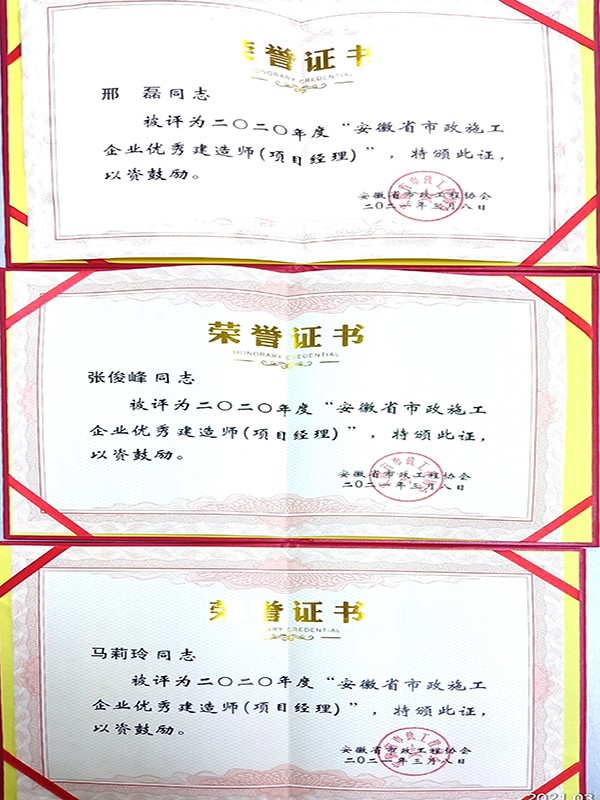 荣誉证书
HONORARY CREDENTIAL
邢 磊同志
被评为二〇二〇年度“安徽省市政施工
企业优秀建造师(项目经理)”，特颁此证，
以资鼓励。
安徽省市政工程协会
二〇二一年三月八日
荣誉证书
HONORARY CREDENTIAL
张俊峰同志
被评为二〇二〇年度“安徽省市政施工
企业优秀建造师(项目经理)”，特颁此证，
以资鼓励。
安徽省市政工程协会
二〇二一年三月八日
荣誉证书
HONORARY CREDENTIAL
马莉玲同志
被评为二〇二〇年度“安徽省市政施工
企业优秀建造师(项目经理)”，特颁此证，
以资鼓励。
安徽省市政工程协会
二〇二一年三月八日
2021.03